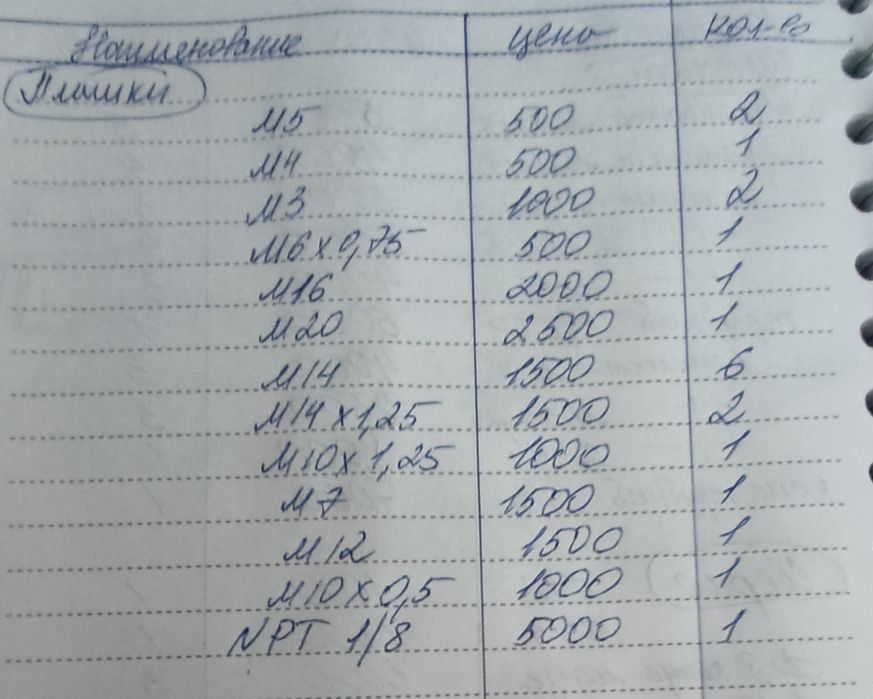 Наименование цена кол-во
Плашки
М5 500 2
М4 500 1
М3 1000 2
М6х0,75 500 1
М16 2000 1
М20 2500 1
М14 1500 6
М14х1,25 1500 2
М10х1,25 1000 1
М7 1500 1
М12 1500 1
М10х0,5 1000 1
NPT 1/8 5000 1